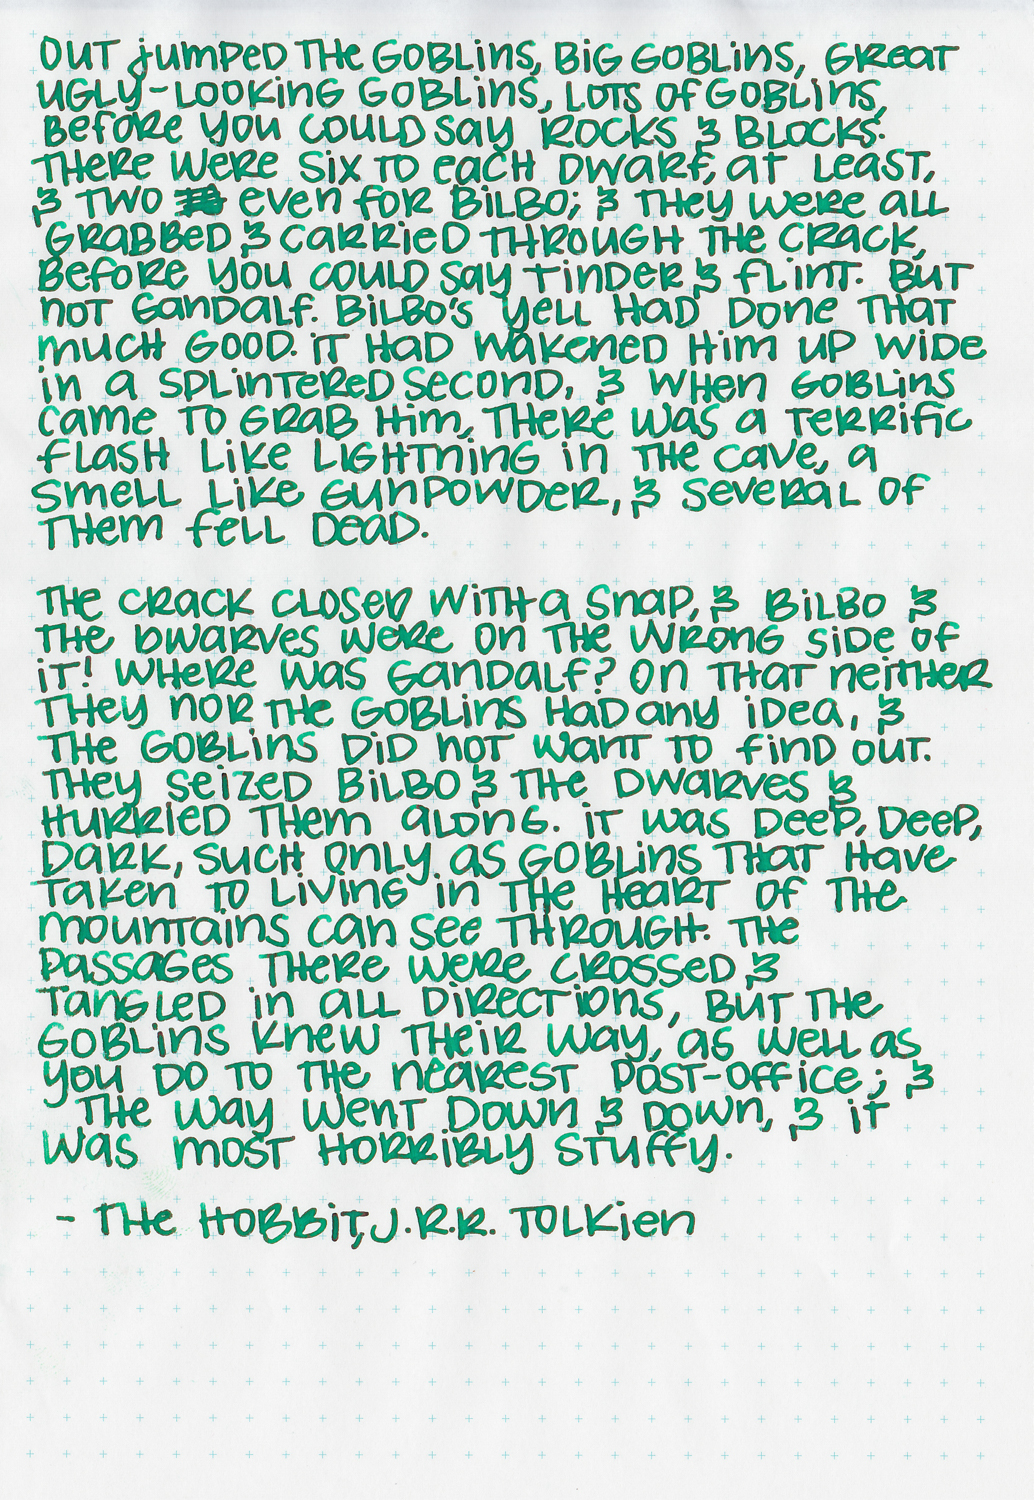 Out jumped the goblins, big goblins, great
ugly-looking goblins, lots of goblins,
before you could say rocks & blocks.
There were six to each dwarf, at least,
& two even for Bilbo; & they were all
grabbed & carried through the crack,
before you could say tinder & flint. But
not Gandalf. Bilbo's yell had done that
much good. It had wakened him up wide
in a splintered second, & when goblins
came to grab him, there was a terrific
flash like lightning in the cave, a
smell like gunpowder, & several of
them fell dead.
The crack closed with a snap, & Bilbo &
the dwarves were on the wrong side of
it! Where was Gandalf? On that neither
they nor the goblins had any idea, &
the goblins did not want to find out.
They seized Bilbo & the dwarves &
hurried them along. It was deep, deep,
dark, such only as goblins that have
taken to living in the heart of the
mountains can see through. The
passages there were crossed &
tangled in all directions, but the
goblins knew their way, as well as
you do to the nearest post-office; &
the way went down & down, & it
was most horribly stuffy.
- The Hobbit, J.R.R. Tolkien